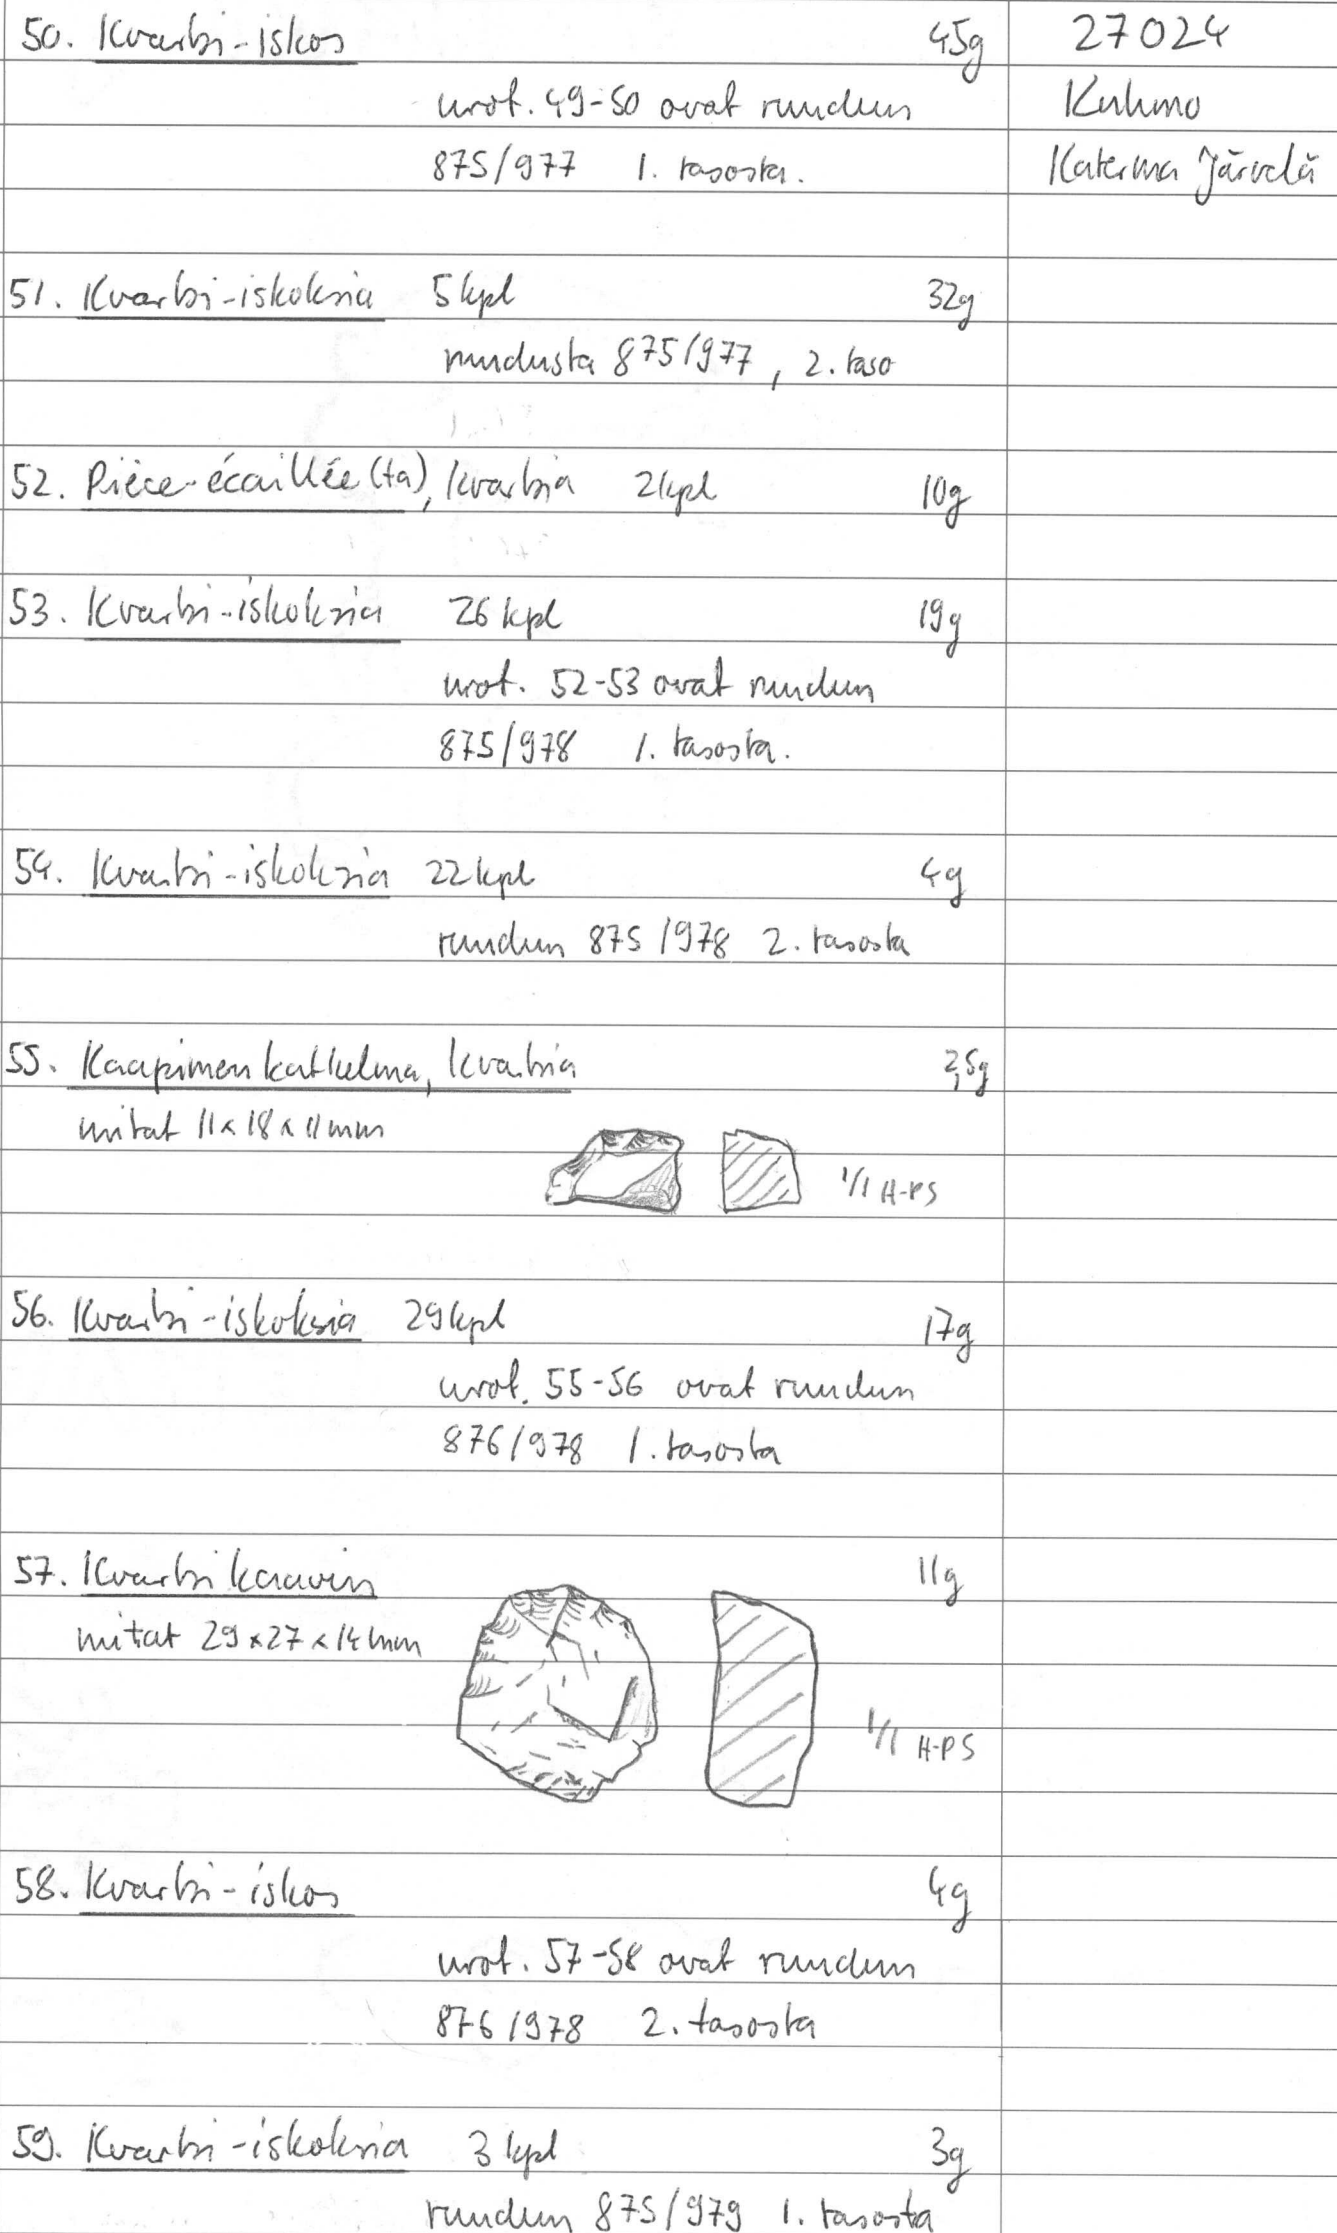 50. Kvartsi-iskos 45g 27024
nrot. 49-50 ovat ruudun Kuhmo
875/977 1. tasosta. Katerma Järvelä
51. Kvartsi-iskoksia 5 kpl 32g
ruudusta 875/977, 2. taso
52. Pièce-écaillée(ta), kvartsia 2 kpl 10g
53. Kvartsi-iskoksia 26 kpl 19g
nrot. 52-53 ovat ruudun
875/978 1. tasosta.
54. Kvartsi-iskoksia 22 kpl 4g
ruudun 875/978 2. tasosta
55. Kaapimen katkelma, kvartsia 2,5g
mitat 11x18x11mm
1/1 H-PS
56. Kvartsi-iskoksia 29 kpl 17g
nrot. 55-56 ovat ruudun
876/978 1. tasosta
57. Kvartsikaavin 11g
mitat 29x27x14mm
1/1 H-PS
58. Kvartsi-iskos 4g
nrot. 57-58 ovat ruudun
876/978 2. tasosta
59. Kvartsi-iskoksia 3 kpl 3g
ruudun 875/979 1. tasosta